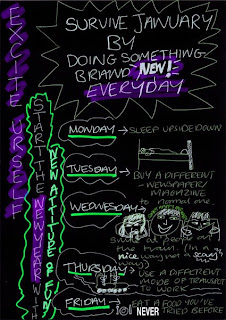 EXCITE URSELF
START THE NEW YEAR WITH
NEW ATTITUDE & FUN!
SURVIVE JANUARY
BY
DOING SOMETHING
BRAND NEW!
EVERYDAY
MONDAY → SLEEP UPSIDE DOWN
TUESDAY →
BUY A DIFFERENT
- NEWSPAPER/
MAGAZINE
to normal me.
WEDNESDAY →
Smile at people
the train. (in a
nice way not a scary
way)
THURSDAY
→ USE A DIFFERENT
MODE OF TRANSPORT
TO WORK
FRIDAY → EAT A FOOD YOU'VE
NEVER TRIED BEFORE